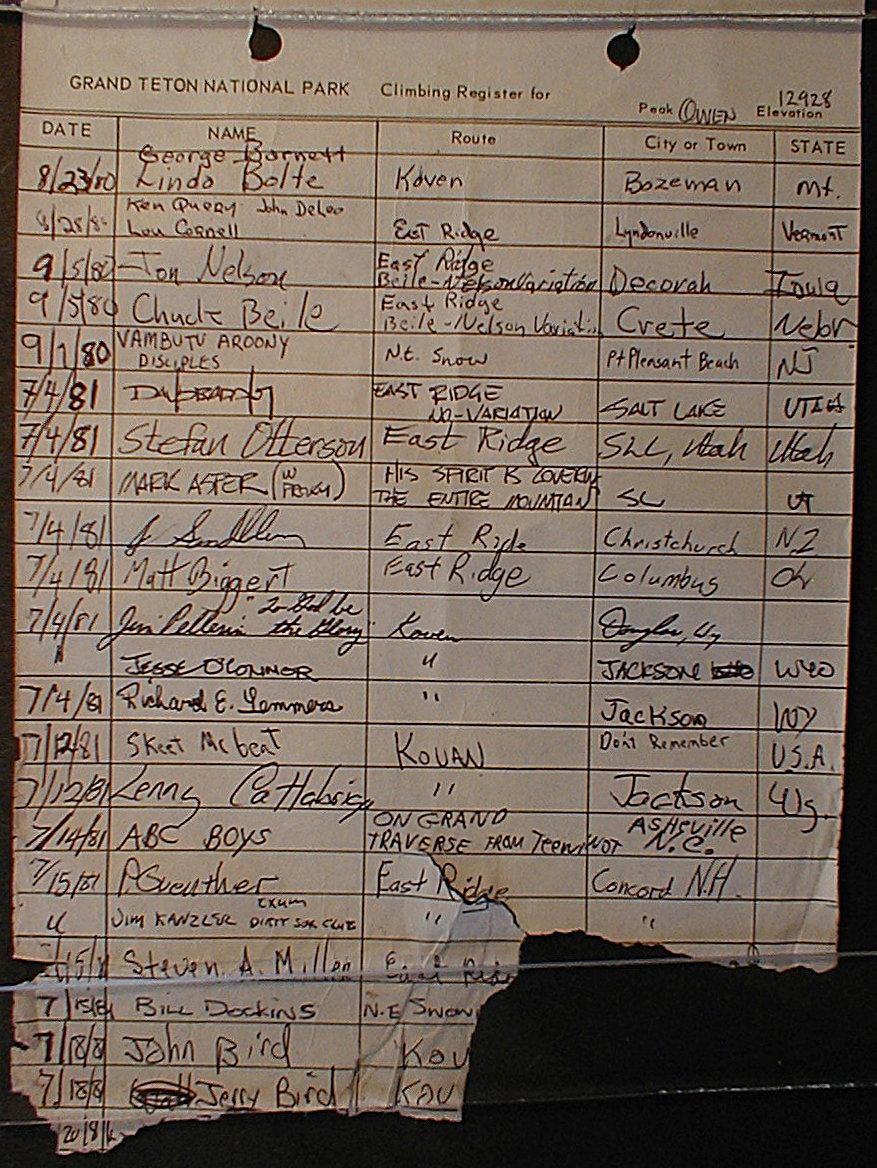 GRAND TETON NATIONAL PARK Climbing Register for
Peak OWEN Elevation 12928
DATE NAME Route City or Town STATE
George Barnett
8/23/80 Linda Bolte Koven Bozeman Mt.
Ken Query John DeLeo
8/28/80 Lou Cornell East Ridge Lyndonville Vermont
9/5/80 Jon Nelson East Ridge
Beile-Nelson Variation Decorah Iowa
9/5/80 Chuck Beile East Ridge
Beile-Nelson Variati.. Crete Nebr
9/1/80 VAMBUTU AROONY
DISCIPLES N.E. Snow Pt Pleasant Beach NJ
7/4/81 EAST RIDGE
NO-VARIATION SALT LAKE UTAH
7/4/81 Stefan Otterson East Ridge SLC, Utah Utah
7/4/81 MARK ASTER (W HIS SPIRIT IS COVERIN
THE ENTIRE MOUNTAIN SL UT
7/4/81 East Ride Christchurch N.Z
7/4/81 Matt Biggert East Ridge Columbus Oh
7/4/81 Jim "To God be
the Glory" Koven Douglas, Wy
" JESSE O'CONNOR " JACKSON WYO
7/4/81 Richard E. Lemmers " Jackson WY
7/12/81 Skeet Mcbeat KOUAN Don't Remember U.S.A.
7/12/81 Lenny " Jackson Wy.
7/14/81 ABC BOYS ON GRAND
TRAVERSE FROM Teewinot Asheville
N.C.
7/15/81 P. Guenther East Ridge Concord N.H.
" JIM KANZLER EXUM
DIRTY SOX CLUB " "
7/15/8 Steven A. Millen East Ridg
7/15/81 BILL DOCKINS N.E Snow
7/18/81 John Bird Kov
7/18/81 Jerry Bird Kov
20/8